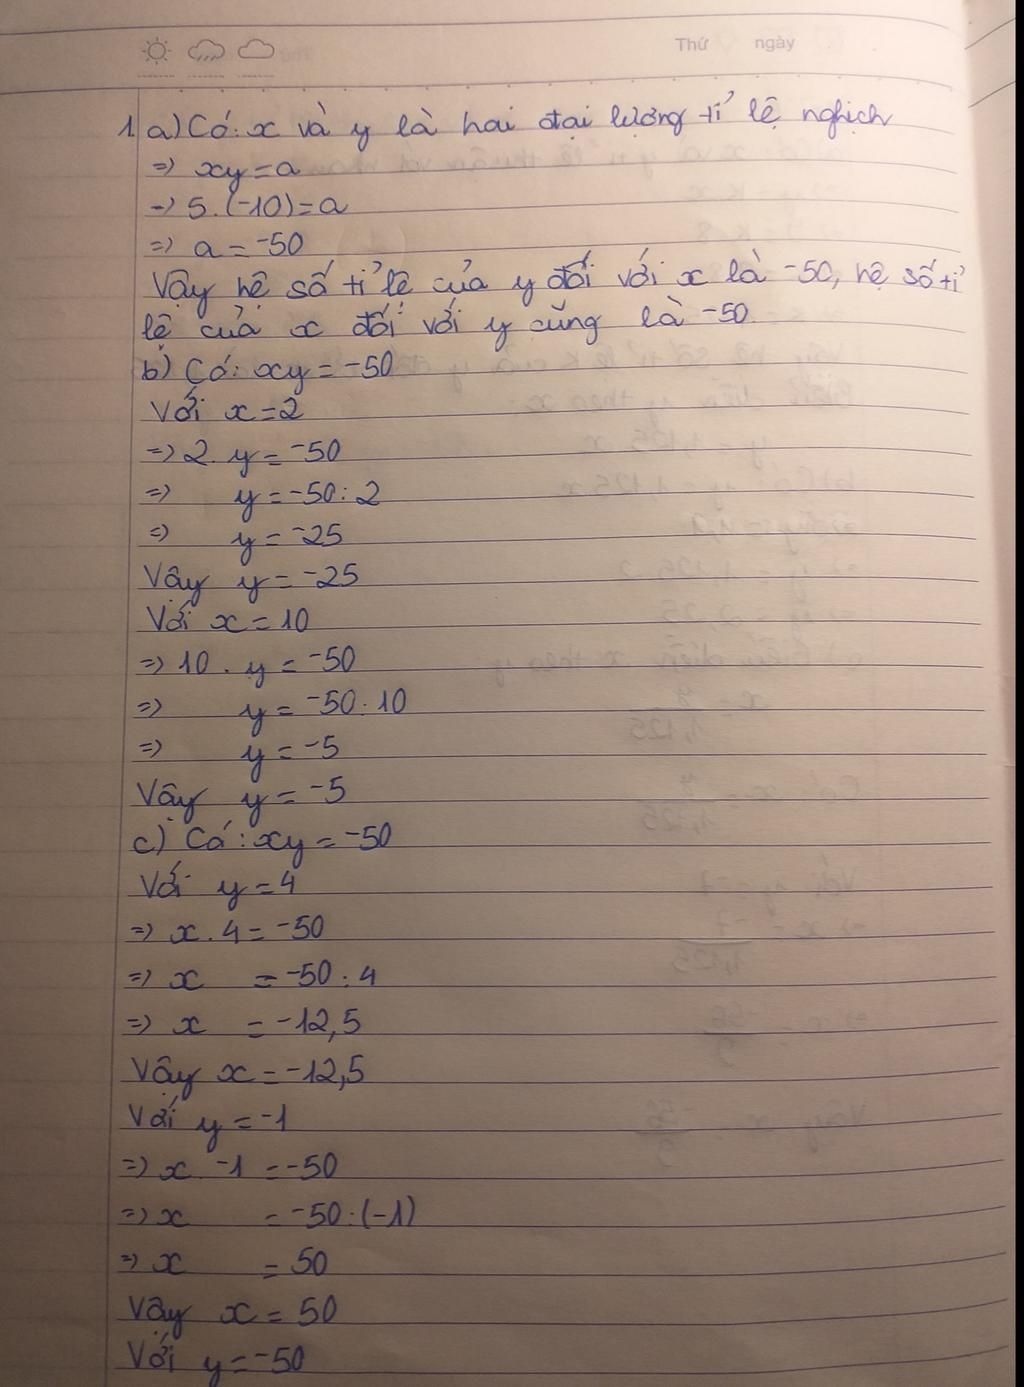 Thứ ngày
1. a) Có: x và y là hai đại lượng tỉ lệ nghịch
=> xy = a
=> 5.(-10) = a
=> a = -50
Vậy hệ số tỉ lệ của y đối với x là -50, hệ số tỉ
lệ của x đối với y cũng là -50.
b) Có: xy = -50
Với x = 2
=> 2. y = -50
=> y = -50 : 2
=> y = -25
Vậy y = -25
Với x = 10
=> 10 . y = -50
=> y = -50 : 10
=> y = -5
Vậy y = -5
c) Có: xy = -50
Với y = 4
=> x . 4 = -50
=> x = -50 : 4
=> x = -12,5
Vậy x = -12,5
Với y = -1
=> x . -1 = -50
=> x = -50 : (-1)
=> x = 50
Vậy x = 50
Với y = -50